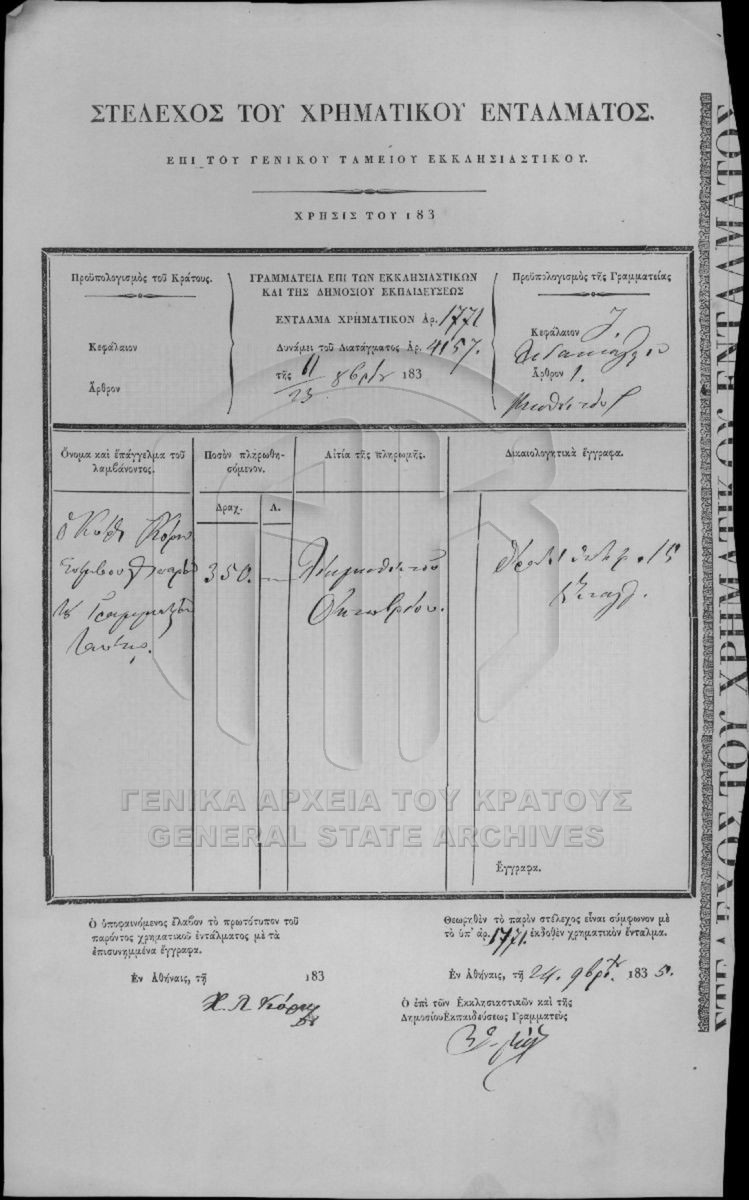 ΣΤΕΛΕΧΟΣ ΤΟΥ ΧΡΗΜΑΤΙΚΟΥ ΕΝΤΑΛΜΑΤΟΣ.
ΕΠΙ ΤΟΥ ΓΕΝΙΚΟΥ ΤΑΜΕΙΟΥ ΕΚΚΛΗΣΙΑΣΤΙΚΟΥ.
ΧΡΗΣΙΣ ΤΟΥ 183
Προϋπολογισμὸς τοῦ Κράτους.
Κεφάλαιον
Ἄρθρον
ΓΡΑΜΜΑΤΕΙΑ ΕΠΙ ΤΩΝ ΕΚΚΛΗΣΙΑΣΤΙΚΩΝ
ΚΑΙ ΤΗΣ ΔΗΜΟΣΙΟΥ ΕΚΠΑΙΔΕΥΣΕΩΣ
ΕΝΤΑΛΜΑ ΧΡΗΜΑΤΙΚΟΝ Αρ. 1771
Δυνάμει τοῦ Διατάγματος Αρ. 4157.
τῆς 11/23 8βρίου 183
Προϋπολογισμὸς τῆς Γραμματείας
Κεφάλαιον
Ἄρθρον 1.
Ὄνομα καὶ ἐπάγγελμα τοῦ
λαμβάνοντος.
Ποσὸν πληρωθη-
σόμενον.
Δραχ. Λ.
Αἰτία τῆς πληρωμῆς.
Δικαιολογητικὰ ἔγγραφα.
350.
Ὀκτωβρίου.
15
Ἔγγραφα.
ΓΕΝΙΚΑ ΑΡΧΕΙΑ ΤΟΥ ΚΡΑΤΟΥΣ
GENERAL STATE ARCHIVES
Ὁ ὑποφαινόμενος ἔλαβον τὸ πρωτότυπον τοῦ
παρόντος χρηματικοῦ ἐντάλματος μὲ τὰ
ἐπισυνημμένα ἔγγραφα.
Ἐν Ἀθήναις, τῇ 183
Θεωρηθὲν τὸ παρὸν στέλεχος εἶναι σύμφωνον μὲ
τὸ ὑπ' ἀρ. 1771. ἐκδοθὲν χρηματικὸν ἔνταλμα.
Ἐν Ἀθήναις, τῇ 24. 9βρίου 1835.
Ὁ ἐπὶ τῶν Ἐκκλησιαστικῶν καὶ τῆς
Δημοσίου Ἐκπαιδεύσεως Γραμματεὺς
ΣΤΕΛΕΧΟΣ ΤΟΥ ΧΡΗΜΑΤΙΚΟΥ ΕΝΤΑΛΜΑΤΟΣ